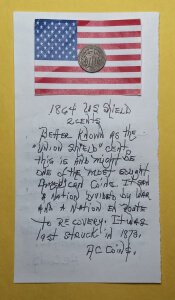 1864 US SHIELD
2 CENTS
BETTER KNOWN AS THE
"UNION SHIELD" CENT,
THIS IS AND MIGHT BE
ONE OF THE MOST SOUGHT
AMERICAN COINS. IT
A NATION DIVIDED BY WAR
AND A NATION EN ROUTE
TO RECOVERY. IT WAS
LAST STRUCK IN 1873.
AC COINS.